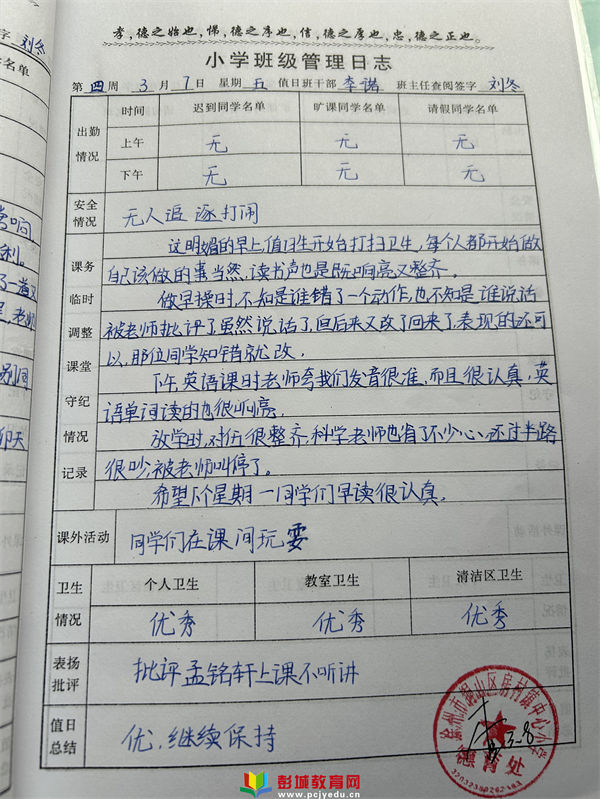 孝，德之始也，悌，德之序也，信，德之厚也，忠，德之正也。
小学班级管理日志
第四周 3月7日 星期五 值日班干部 李诺 班主任查阅签字 刘冬
出勤情况
时间 迟到同学名单 旷课同学名单 请假同学名单
上午 无 无 无
下午 无 无 无
安全情况 无人追逐打闹
课务临时调整课堂守纪情况记录
这明媚的早上，值日生开始打扫卫生，每个人都开始做
自己该做的事当然，读书声也是既响亮又整齐。
做早操时，不知是谁错了一个动作，也不知是谁说话
被老师批评了虽然说话了，但后来又改了回来了，表现的还可
以，那位同学知错就改。
下午，英语课时老师夸我们发音很准，而且很认真，英
语单词读的也很响亮。
放学时，对伍很整齐，科学老师也省了不少心，还过半路
很吵，被老师叫停了。
希望下个星期一同学们早读很认真。
课外活动 同学们在课间玩耍
卫生情况
个人卫生 教室卫生 清洁区卫生
优秀 优秀 优秀
表扬批评 批评孟铭轩上课不听讲
值日总结 优，继续保持
徐州市铜山区房村镇中心小学
德育处
3-8
彭城教育网
www.pcjyedu.cn
刘冬
同学名单